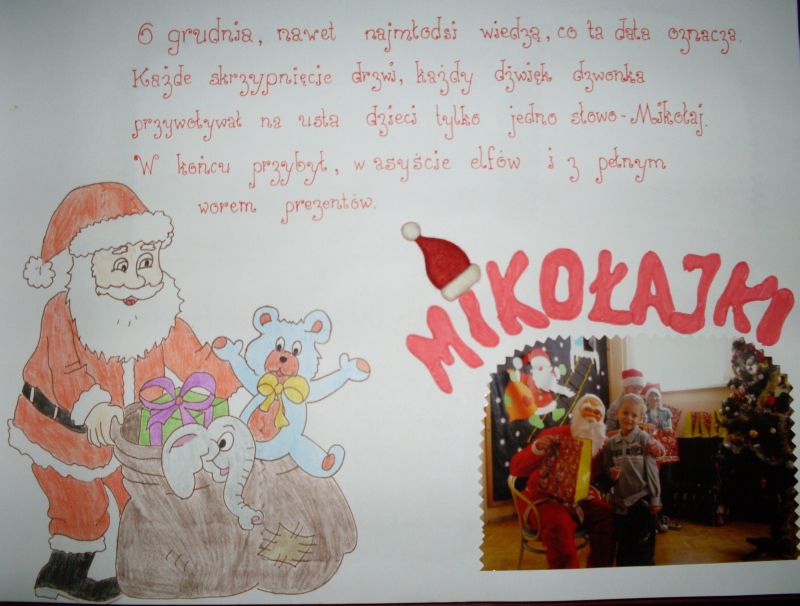 6 grudnia, nawet najmłodsi wiedzą, co ta data oznacza.
Każde skrzypnięcie drzwi, każdy dźwięk dzwonka
przywoływał na usta dzieci tylko jedno słowo - Mikołaj.
W końcu przybył, w asyście elfów i z pełnym
worem prezentów.
MIKOŁAJKI